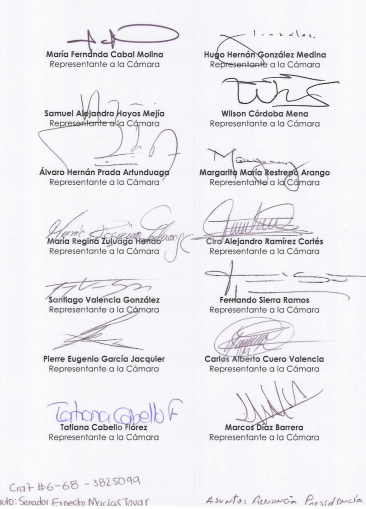 María Fernanda Cabal Molina
Representante a la Cámara
Hugo Hernán González Medina
Representante a la Cámara
Samuel Alejandro Hoyos Mejía
Representante a la Cámara
Wilson Córdoba Mena
Representante a la Cámara
Álvaro Hernán Prada Artunduaga
Representante a la Cámara
Margarita María Restrepo Arango
Representante a la Cámara
María Regina Zuluaga Henao
Representante a la Cámara
Ciro Alejandro Ramírez Cortés
Representante a la Cámara
Santiago Valencia González
Representante a la Cámara
Fernando Sierra Ramos
Representante a la Cámara
Pierre Eugenio García Jacquier
Representante a la Cámara
Carlos Alberto Cuero Valencia
Representante a la Cámara
Tatiana Cabello F
Tatiana Cabello Flórez
Representante a la Cámara
Marcos Díaz Barrera
Representante a la Cámara
Cra 7 #6-68 - 3825099
Senador Ernesto Macías Tovar
Asunto: Renuncia Presidencia